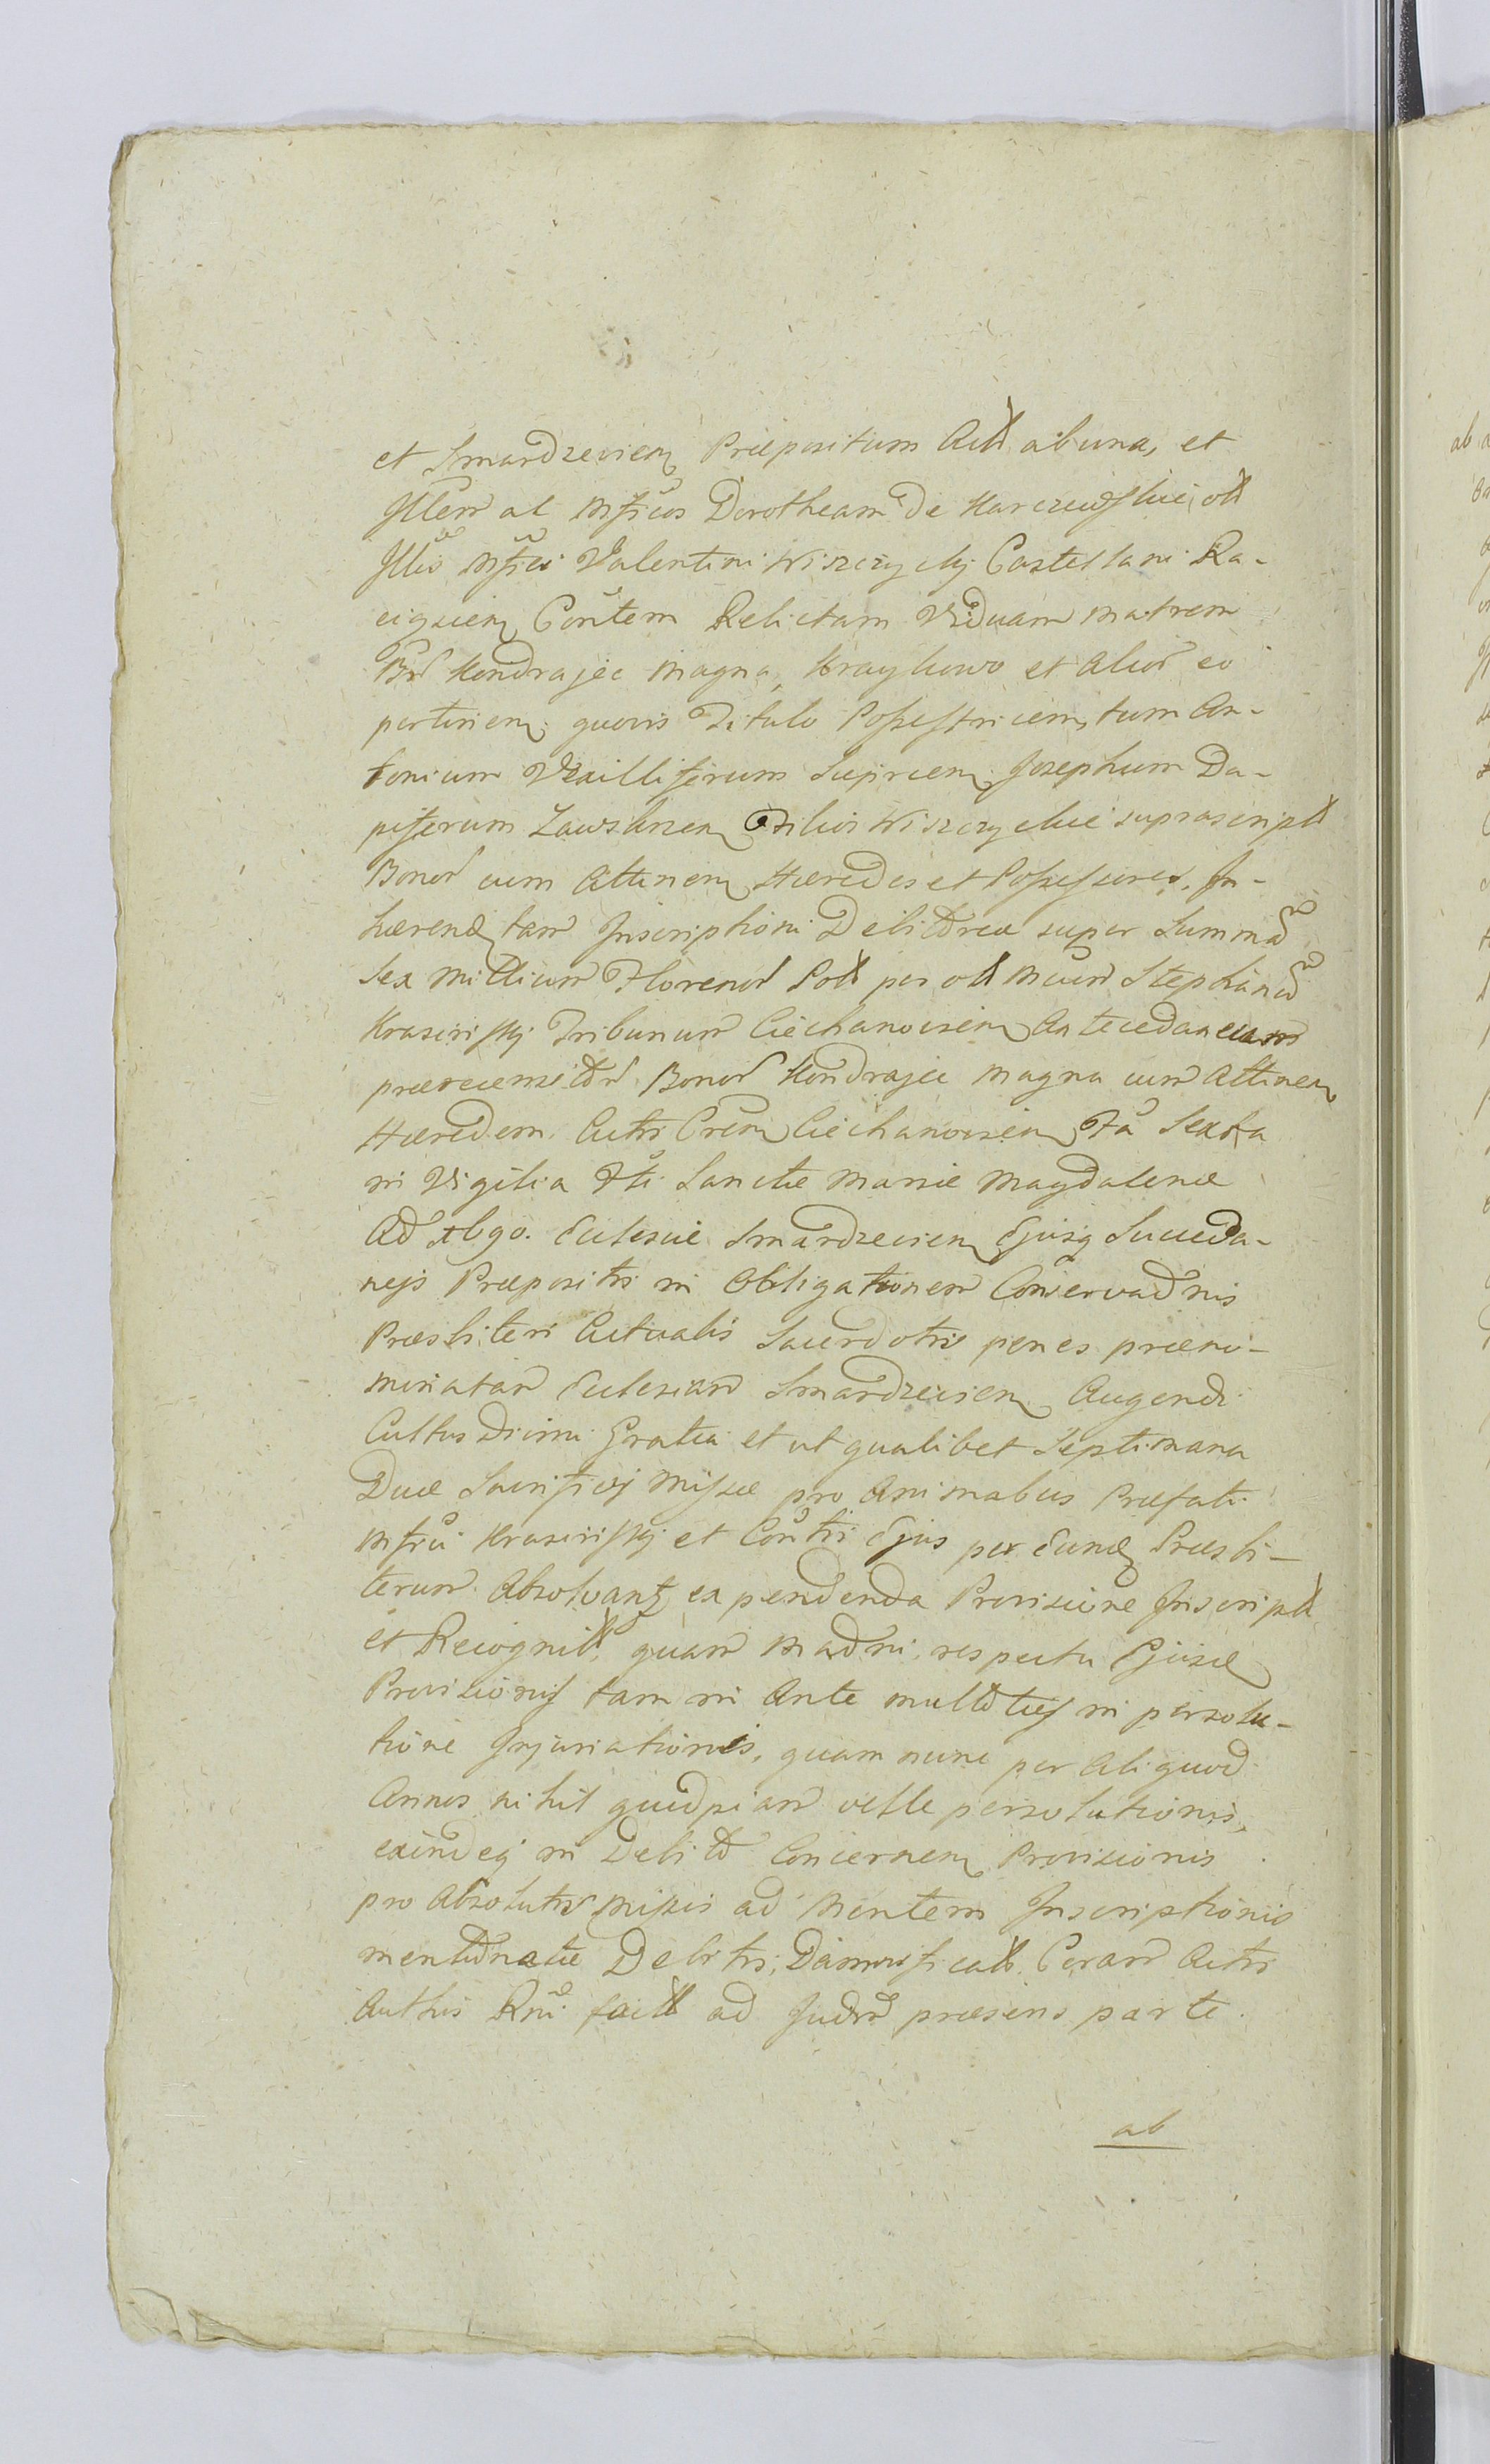 et Smardzevien Præpositum Actt ab una, et
Jllem ac Mficos Dorotheam de Karczewskie olt
Jllis Mfici Valentini Wiszczyckij Castellani Ra-
ciązien Contem Relictam Viduam Matrem
Bnr Kondrajec Magna, Kraykowo et Alior eo
pertinen quovis Titulo Possestricem, tum An-
tonium Vexilliferum Sierpcen, Josephum Da-
piferum Zawskrzen Filios Wiszczyckie suprascriptt
Bonor cum Attinen Hæredes et Possessores, In-
hærend tam Inscriptioni Debitoreæ super Summa
Sex Millium Florenor Polt per olt Mcum Stephanum
Krasinskij Tribunum Ciechanovien Antecedaneum
prærecensitor Bonor Kondrajec Magna cum Attinen
Hæredem Actis Cren Ciechanovien Fa Sexta
in Vigilia Fti Sanctæ Mariæ Magdalenæ
Ad 1690. Ecclesiæ Smardzevien Ejusq Succeda-
nejs Præpositis in Obligationem Conservadnis
Præsbiteri Actualis Sacerdotis penes præno-
minatam Ecclesiam Smardzevien Augendi
Cultus Divini Gratia et ut qualibet Septimana
Duæ Sacrificij Missæ pro Animabus Præfati
Mfici Krasinskij et Contis Ejus per Eund Præsbi-
terum Absolvant ex pendenda Provisione Inscriptt
et Recognitt, quam Madni respectu Ejusd
Provisionis tam in Ante multoties in persolu-
tione Injuriationis, quam nunc per Aliquod
Annos nihil quidpiam velle persolutionis,
exindeq in Debito Concernen Provisionis
pro Absolutis Missis ad Mentem Inscriptionis
mentionatæ Debitis, Damnificatt Coram Actis
Authis Rni factt ad Judm præsens parte
ab